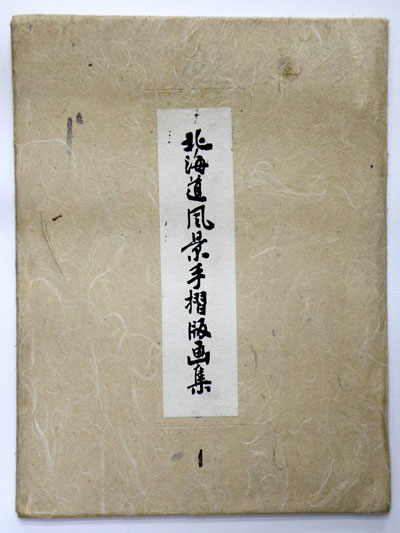 北海道風景手摺版画集
1